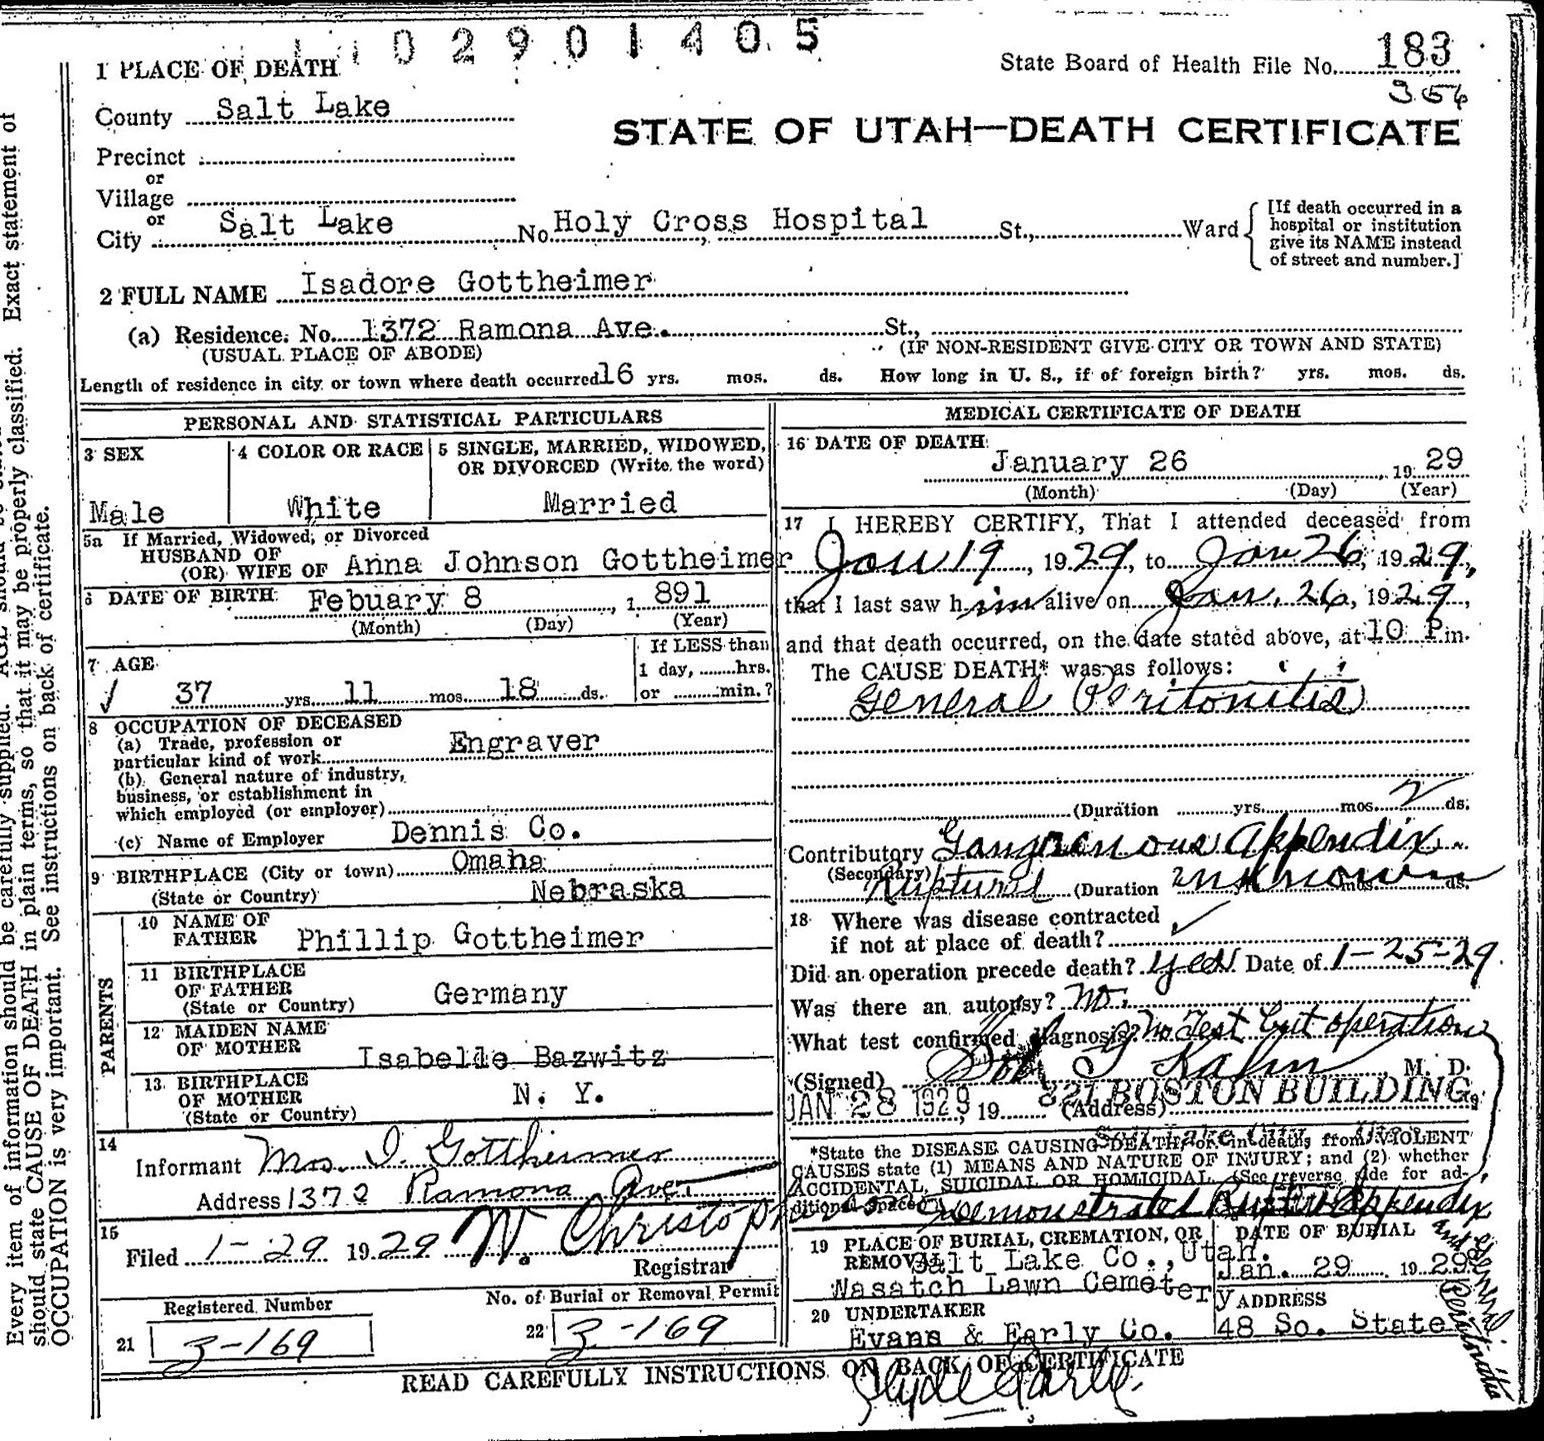 1 1 0 2 9 0 1 4 0 5
1 PLACE OF DEATH
State Board of Health File No. 183
356
County Salt Lake
STATE OF UTAH—DEATH CERTIFICATE
Precinct
or
Village
or
City Salt Lake No. Holy Cross Hospital St., Ward
[If death occurred in a
hospital or institution
give its NAME instead
of street and number.]
2 FULL NAME Isadore Gottheimer
(a) Residence. No. 1372 Ramona Ave. St.,
(USUAL PLACE OF ABODE) (IF NON-RESIDENT GIVE CITY OR TOWN AND STATE)
Length of residence in city or town where death occurred 16 yrs. mos. ds. How long in U. S., if of foreign birth? yrs. mos. ds.
PERSONAL AND STATISTICAL PARTICULARS
3 SEX
Male
4 COLOR OR RACE
White
5 SINGLE, MARRIED, WIDOWED,
OR DIVORCED (Write the word)
Married
5a If Married, Widowed, or Divorced
HUSBAND OF
(OR) WIFE OF Anna Johnson Gottheimer
6 DATE OF BIRTH Febuary 8, 1 891
(Month) (Day) (Year)
7 AGE
37 yrs. 11 mos. 18 ds.
If LESS than
1 day, hrs.
or min.?
8 OCCUPATION OF DECEASED
(a) Trade, profession or
particular kind of work Engraver
(b) General nature of industry,
business, or establishment in
which employed (or employer)
(c) Name of Employer Dennis Co.
9 BIRTHPLACE (City or town) Omaha
(State or Country) Nebraska
PARENTS
10 NAME OF
FATHER Phillip Gottheimer
11 BIRTHPLACE
OF FATHER
(State or Country) Germany
12 MAIDEN NAME
OF MOTHER Isabelle Bazwitz
13 BIRTHPLACE
OF MOTHER
(State or Country) N. Y.
14
Informant Mrs. I. Gottheimer
Address 1372 Ramona Ave
15
Filed 1-29 1929 W. Christopher
Registrar
Registered Number
21 3-169
No. of Burial or Removal Permit
22 3-169
MEDICAL CERTIFICATE OF DEATH
16 DATE OF DEATH
January 26, 19 29
(Month) (Day) (Year)
17 I HEREBY CERTIFY, That I attended deceased from
Jan 19, 1929, to Jan 26, 1929,
that I last saw him alive on Jan. 26, 1929,
and that death occurred, on the date stated above, at 10 P m.
The CAUSE DEATH* was as follows:
General Peritonitis
(Duration yrs. mos. 2 ds.
Contributory Gangrenous Appendix
(Secondary) Ruptured (Duration unknown mos. ds.
18 Where was disease contracted
if not at place of death?
Did an operation precede death? yes. Date of 1-25-29.
Was there an autopsy? No.
What test confirmed diagnosis? No Test but operation
(Signed) Sol G Kahn, M. D.
JAN 28 1929, 19 (Address) 321 BOSTON BUILDING,
Salt Lake City, Utah
*State the DISEASE CAUSING DEATH, or, in deaths from VIOLENT
CAUSES state (1) MEANS AND NATURE OF INJURY; and (2) whether
ACCIDENTAL, SUICIDAL OR HOMICIDAL. (See reverse side for ad-
ditional space.)
Demonstrated Ruptured Appendix
and General
Peritonitis
19 PLACE OF BURIAL, CREMATION, OR
REMOVAL Salt Lake Co., Utah.
Wasatch Lawn Cemetery
DATE OF BURIAL
Jan. 29 1929
20 UNDERTAKER
Evans & Early Co.
ADDRESS
48 So. State
READ CAREFULLY INSTRUCTIONS ON BACK OF CERTIFICATE
Clyde Early.
Every item of information should be carefully supplied. AGE should be
should state CAUSE OF DEATH in plain terms, so that it may be properly classified. Exact statement of
OCCUPATION is very important. See instructions on back of certificate.